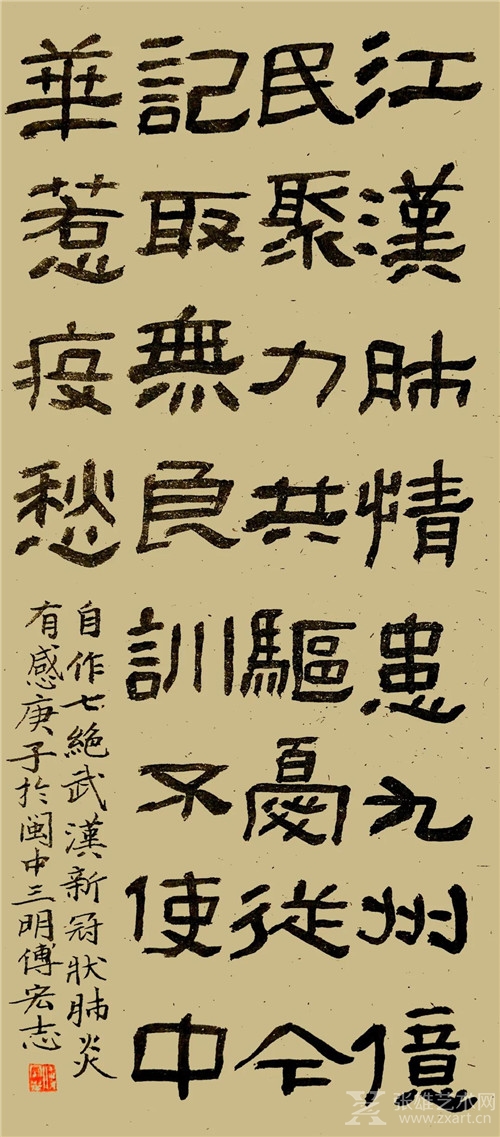 江漢肺情患九州億
民聚力共驅憂從今
記取無良訓不使中
華惹疫愁
自作七絕武漢新冠狀肺炎
有感庚子於閩中三明傅宏志
张雄艺术网
www.zxart.cn